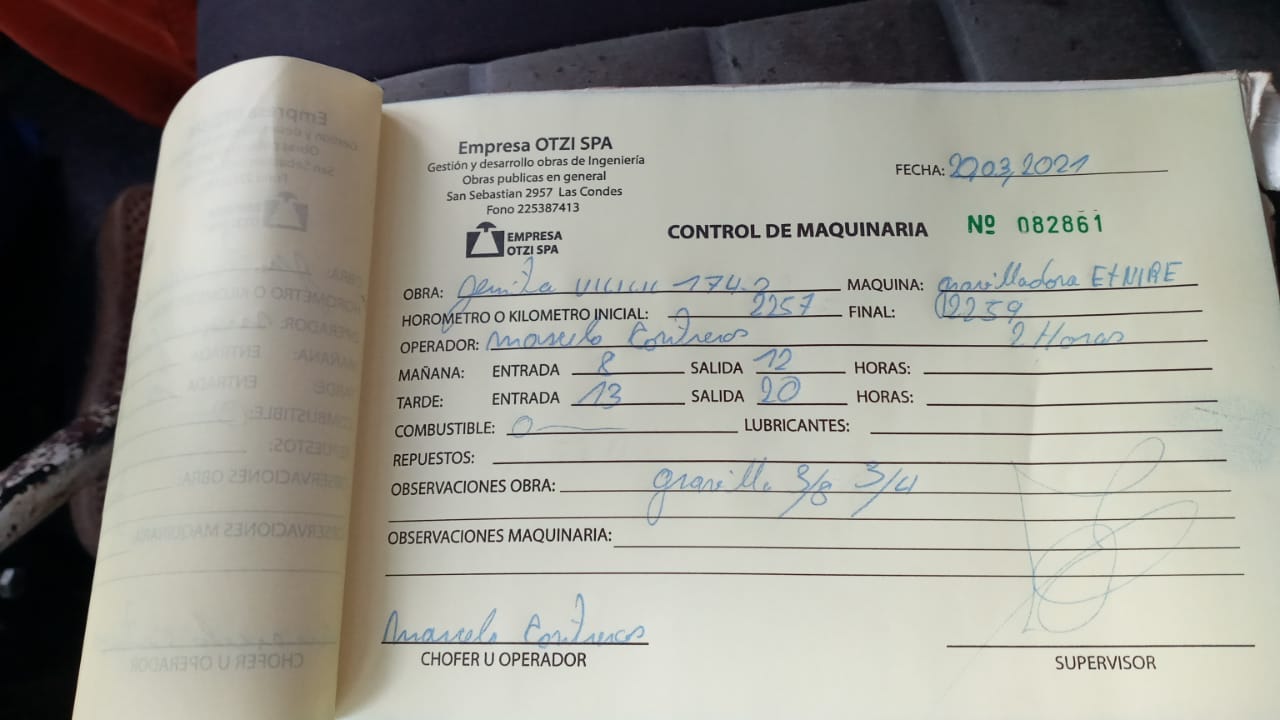 Empresa OTZI SPA
Gestión y desarrollo obras de Ingeniería
Obras publicas en general
San Sebastian 2957 Las Condes
Fono 225387413
FECHA: 20,03,2021
EMPRESA
OTZI SPA
CONTROL DE MAQUINARIA Nº 082861
OBRA: 174 MAQUINA: gravilladora EtNIRE
HOROMETRO O KILOMETRO INICIAL: 2257 FINAL: 2259
OPERADOR: Marcelo Contreras 2 Horas
MAÑANA: ENTRADA 8 SALIDA 12 HORAS:
TARDE: ENTRADA 13 SALIDA 20 HORAS:
COMBUSTIBLE: LUBRICANTES:
REPUESTOS:
OBSERVACIONES OBRA: gravilla 3/8 3/4
OBSERVACIONES MAQUINARIA:
Marcelo Contreras
CHOFER U OPERADOR
SUPERVISOR